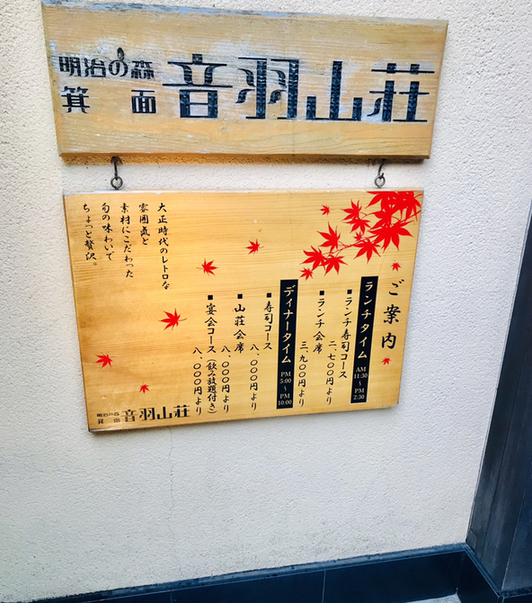 明治の森
箕面
音羽山荘
ご案内
ランチタイム AM 11:30～PM 2:30
■ランチ寿司コース
二、七〇〇円より
■ランチ会席
三、九〇〇円より
ディナータイム PM 5:00～PM 10:00
■寿司コース
八、〇〇〇円より
■山荘会席
八、〇〇〇円より
■宴会コース（飲み放題付き）
八、〇〇〇円より
大正時代のレトロな
雰囲気と
素材にこだわった
旬の味わいで
ちょっと贅沢。
明治の森
箕面
音羽山荘